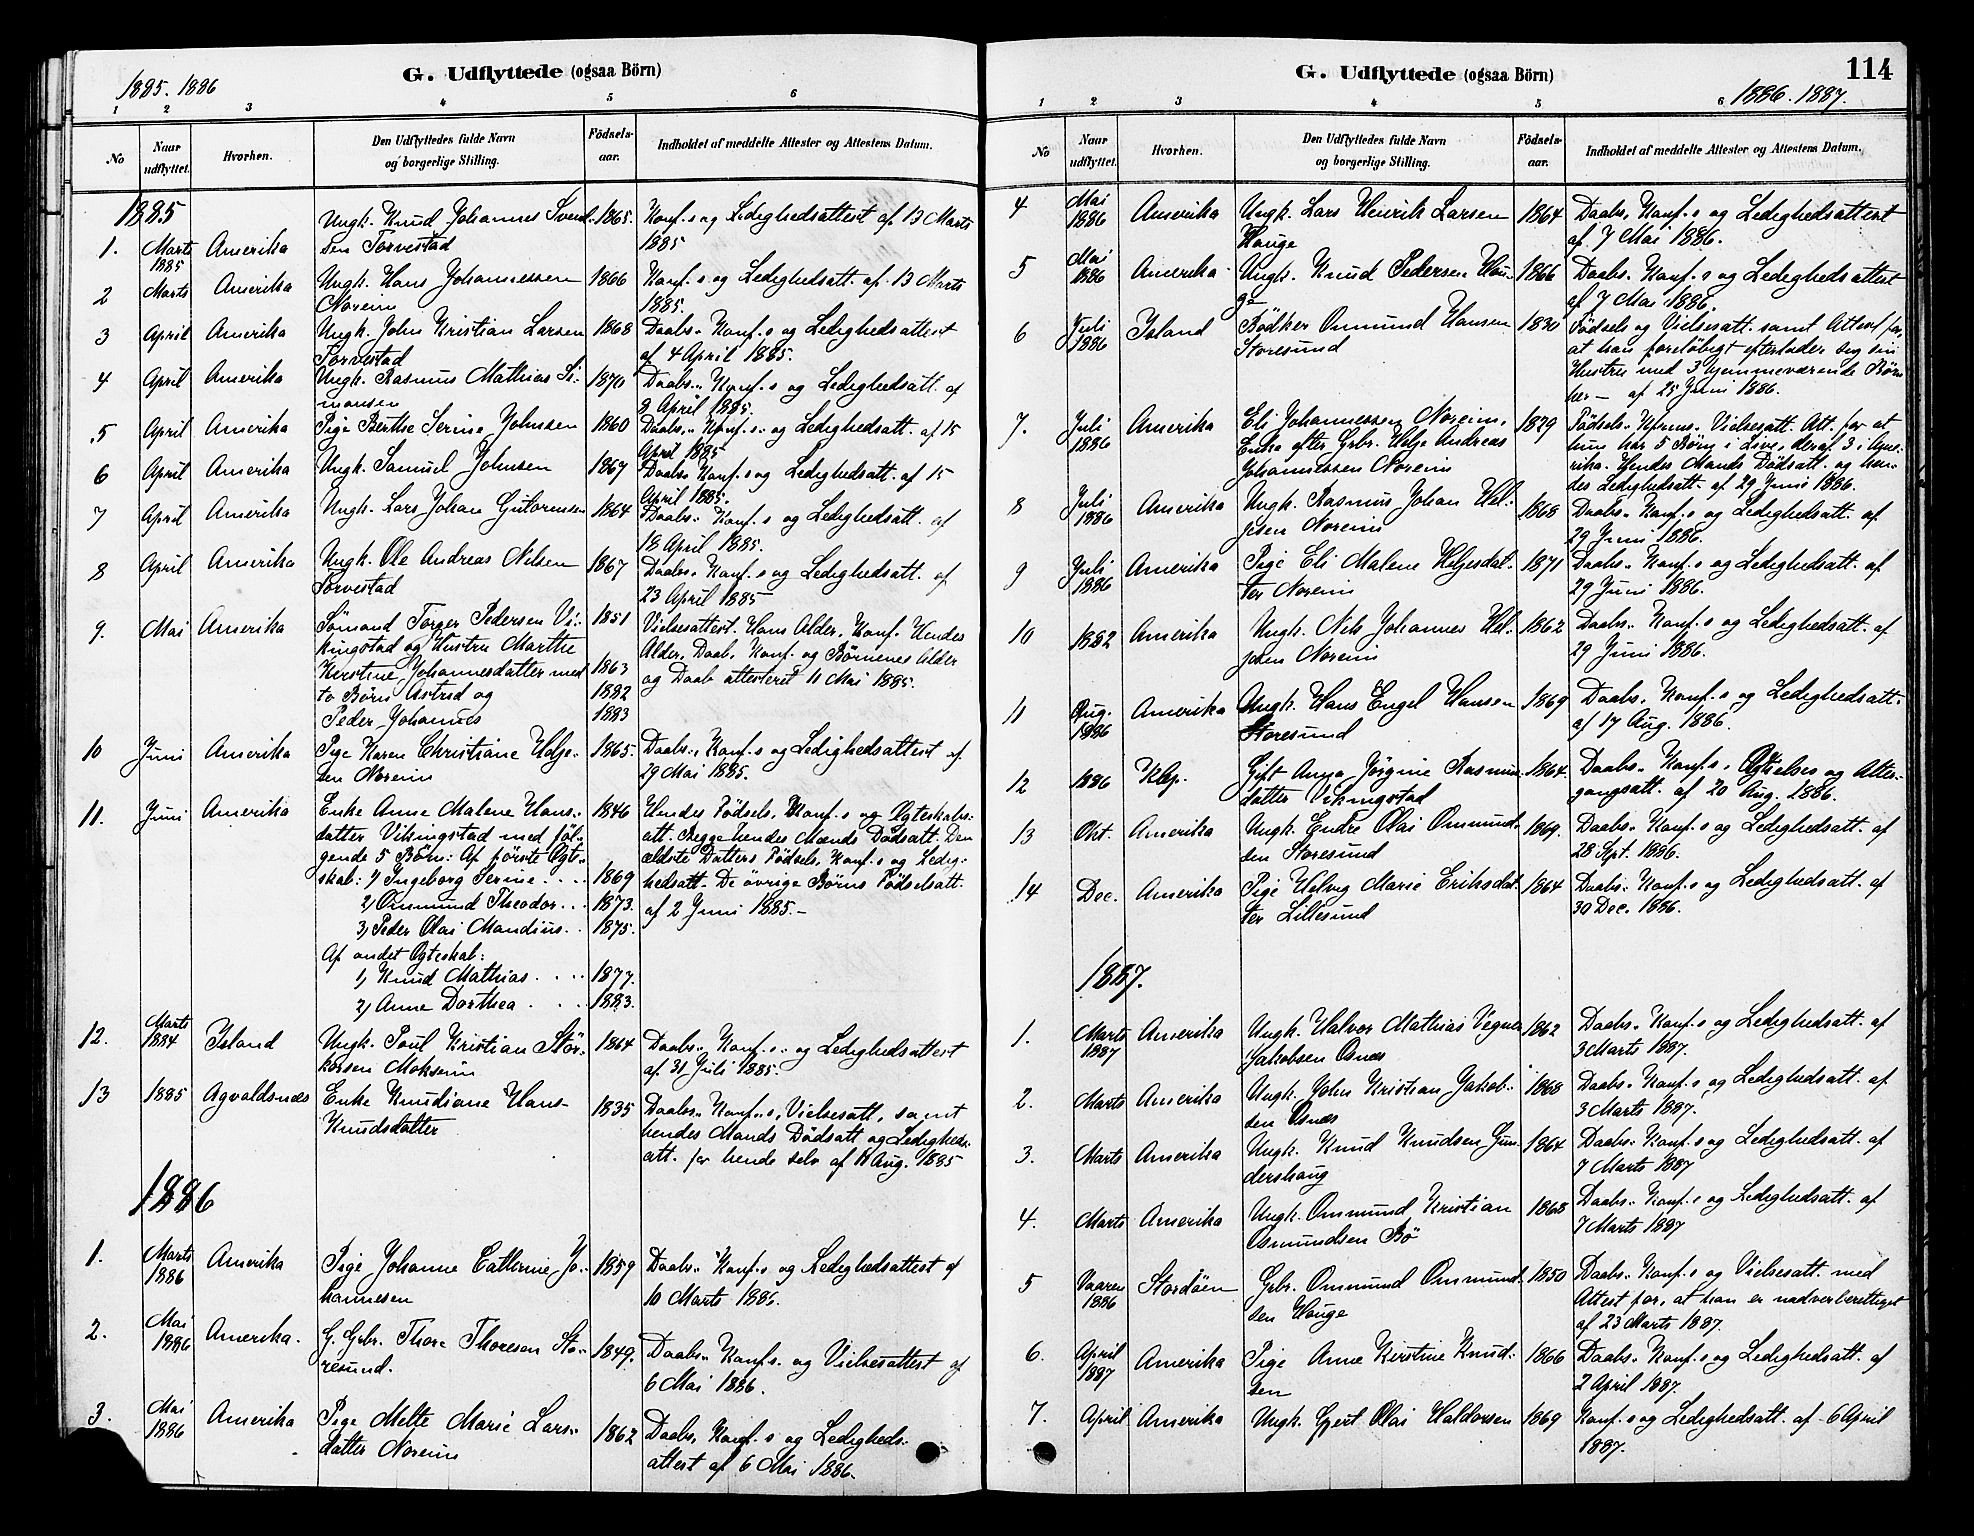 1885. 1886
G. Udflyttede (ogsaa Börn)
1 2 3 4 5 6
No
Naar udflyttet.
Hvorhen.
Den Udflyttedes fulde Navn og borgerlige Stilling.
Födsels-aar.
Indholdet af meddelte Attester og Attestens Datum.
1885
1. Marts 1885 Amerika Ungk. Knud Johannes Svend- 1865. Konf.s og Ledighedsattest af 13 Marts
sen Torvestad 1885
2 Marts Amerika Ungk. Hans Johannessen 1866 Konf.s og Ledighedsatt. af 13 Marts
Noreim 1885.
3 April Amerika Ungk. John Kristian Larsen 1868 Daabs- Konf.s og Ledighedsattest
Torvestad af 4 April 1885.
4 April Amerika Ungk. Rasmus Mathias Si- 1870 Daabs- Konf.s og Ledighedsatt. af
monsen 8 April 1885.
5 April Amerika Pige Berthe Serine Johnsen 1860 Daabs- Konf.s- og Ledighedsatt. af 15
April 1885
6 April Amerika Ungk. Samuel Johnsen 1867 Daabs- Konf.s og Ledighedsatt. af 15
April 1885.
7 April Amerika Ungk. Lars Johan Gutormsen 1864 Daabs- Konf.s og Ledighedsatt. af
18 April 1885.
8 April Amerika Ungk. Ole Andreas Nilsen 1867 Daabs- Konf.s og Ledighedsatt. af
Torvestad 23 April 1885
9. Mai Amerika Sömand Torger Pedersen Vi- 1851 Vielsesattest. Hans Alder, Konf. Hendes
kingstad og Hustru Marthe Alder, Daab, Konf. og Börnenes Alder
Kirstine Johannesdatter med 1863 og Daab attesteret 11 Mai 1885.
to Börn Astrid og 1882
Peder Johannes 1883
10 Juni Amerika Pige Karen Christiane Helje- 1865. Daabs-, Konf.s og Ledighedsattest af
sen Noreim 29 Mai 1885.
11. Juni Amerika Enke Anne Malene Hans- 1846 Hendes Födsels, Konf.s og Ægteskabs-
datter Vikingstad med föl- att. Begge hendes Mænds Dödsatt. Den
gende 5 Börn: Af förste Ægte- ældste Datters Födsels, Konf.s og Ledig-
skab: 1) Ingeborg Serine 1869 hedsatt. De övrige Börns Födselsatt.
2) Ommund Theodor 1873. af 2 Juni 1885.-
3) Peder Olai Mandius 1875.
Af andet Ægteskab:
1) Knud Mathias 1877.
2) Anne Dorthea 1883.
12. Marts 1884 Island Ungk. Poul Kristian Stör- 1864 Daabs- Konf.s- og Ledighedsattest
kersen Moksein af 31 Juli 1885.
13 1885 Agvaldsnes Enke Knudiane Hans- 1835 Daabs- Konf.s, Vielsesatt, samt
Knudsdatter hendes Mands Dödsatt og Ledigheds-
att. for hende selv af 11 Aug. 1885
1886
1. Marts 1886 Amerika Pige Johanne Cathrine Jo- 1859 Daabs- Konf.s og Ledighedsattest af
hannesen 10 Marts 1886.
2. Mai 1886 Amerika. G. Grbr. Thore Thoresen Sto- 1849. Daabs- Konf.s. og Vielsesattest af
resund. 6 Mai 1886.
3. Mai 1886 Amerika Pige Melte Marie Lars- 1862 Daabs, Konf.s og Ledigheds-
datter Noreim attest af 6 Mai 1886.
G. Udflyttede (ogsaa Börn)
114
1886. 1887.
1 2 3 4 5 6
No
Naar udflyttet.
Hvorhen.
Den Udflyttedes fulde Navn og borgerlige Stilling.
Födsels-aar.
Indholdet af meddelte Attester og Attestens Datum.
4 Mai 1886 Amerika Ungk. Lars Henrik Larsen 1864 Daabs, Konf.s og Ledighedsattest
Hauge af 7 Mai 1886.
5 Mai 1886 Amerika Ungk. Knud Pedersen Hau- 1866 Daabs- Konf.s og Ledighedsattest
ge af 7 Mai 1886.
6 Juli 1886 Island Bödker Omund Hansen 1830 Födsels og Vielsesatt. samt Attest for,
Storesund at han forelöbigt efterlader sig sin
Hustru med 3 hjemmeværende Börn
her - af 25 Juni 1886.
7. Juli 1886 Amerika Eli Johannessen Noreim, 1829 Födsels- Kfrms- Vielsesatt. Att. for at
Enke efter Grbr. Helje Andreas hun har 5 Börn i Live, deraf 3 i Ame-
Johannessen Noreim rika. Hendes Mands Dödsatt. og hen-
des Ledighedsatt. af 29 Juni 1886.
8 Juli 1886 Amerika Ungk. Rasmus Johan Hel- 1868 Daabs- Konf.s og Ledighedsatt. af
jesen Noreim 29 Juni 1886.
9 Juli 1886 Amerika Pige Eli Malene Heljesdat- 1871 Daabs- Konf.s og Ledighedsatt. af
ter Noreim 29 Juni 1886.
10 1882 Amerika Ungk. Nils Johannes Hel- 1862 Daabs- Konf.s og Ledighedsatt. af
jesen Noreim 29 Juni 1886.
11 Aug. 1886 Amerika Ungk. Hans Engel Hansen 1869 Daabs- Konf.s og Ledighedsatt.
Storesund af 17 Aug. 1886.
12 1886 Klep. Gift Anna Jörgine Rasmus- 1864. Daabs- Konf.s, Vielses og After-
datter Vikingstad gangsatt. af 20 Aug. 1886.
13 Okt. Amerika Ungk. Endre Olai Ommund- 1869. Daabs- Konf.s og Ledighedsatt. af
sen Storesund 28 Sept. 1886.
14 Dec. Amerika Pige Helvig Marie Eriksdat- 1864 Daabs- Konf.s og Ledighedsatt. af
ter Lillesund 30 Dec. 1886.
1887.
1. Marts 1887 Amerika Ungk. Halvor Mathias Vegner 1862 Daabs- Konf.s og Ledighedsatt. af
Jakobsen Osnes 3 Marts 1887.
2. Marts Amerika Ungk. John Kristian Jakob- 1868 Daabs- Konf.s og Ledighedsatt. af
sen Osnes 3 Marts 1887.
3. Marts Amerika Ungk. Knud Knudsen Gun- 1864 Daabs- Konf.s og Ledighedsatt. af
dershaug 7 Marts 1887
4. Marts Amerika Ungk. Ommund Kristian 1868 Daabs- Konf.s og Ledighedsatt. af
Osmundsen Bö 7 Marts 1887
5 Vaaren 1886 Stordöen Grbr. Ommund Ommund- 1850 Daabs- Konf.s og Vielsesatt. med
sen Hauge Attest for, at han er nadverberettiget
af 23 Marts 1887.
6. April 1887 Amerika Pige Anne Kirstine Knud- 1866 Daabs- Konf.s og Ledighedsatt. af
sen 2 April 1887.
7. April Amerika Ungk. Gjert Olai Haldorsen 1869 Konf.s og Ledighedsatt. af 6 April
1887.